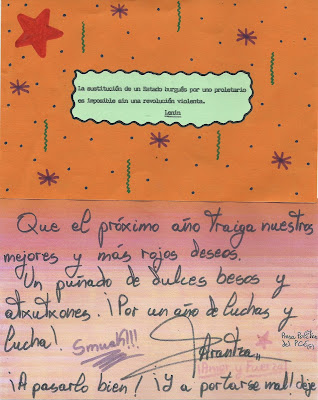 La sustitución de un Estado burgués por uno proletario
es imposible sin una revolución violenta.
Lenin
Que el próximo año traiga nuestros
mejores y más rojos deseos.
Un puñado de dulces besos y
atxutxones. ¡Por un año de luchas y
lucha!.
Smuak!!!
Arantza..
Presa Política
del PCE(r)
¡Amor y Fuerza!
¡A pasarlo bien! ¡Y a portarse mal! dejé